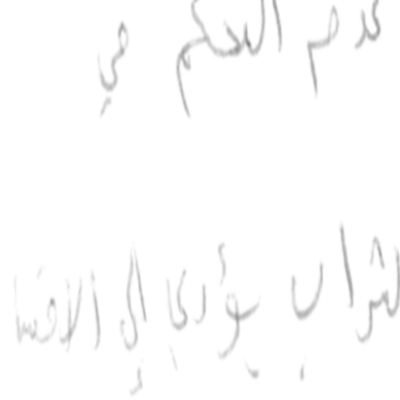 عدم التحكم في
الشراب يؤدي إلى الافتنا